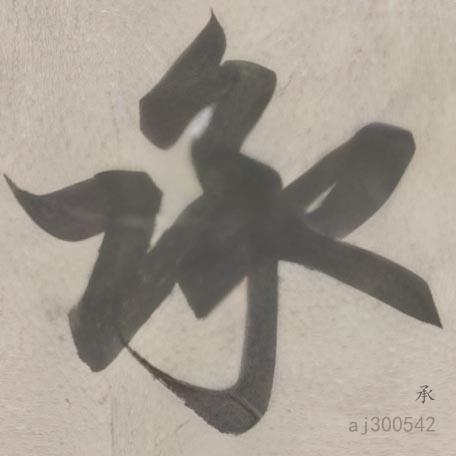 承
承
aj300542